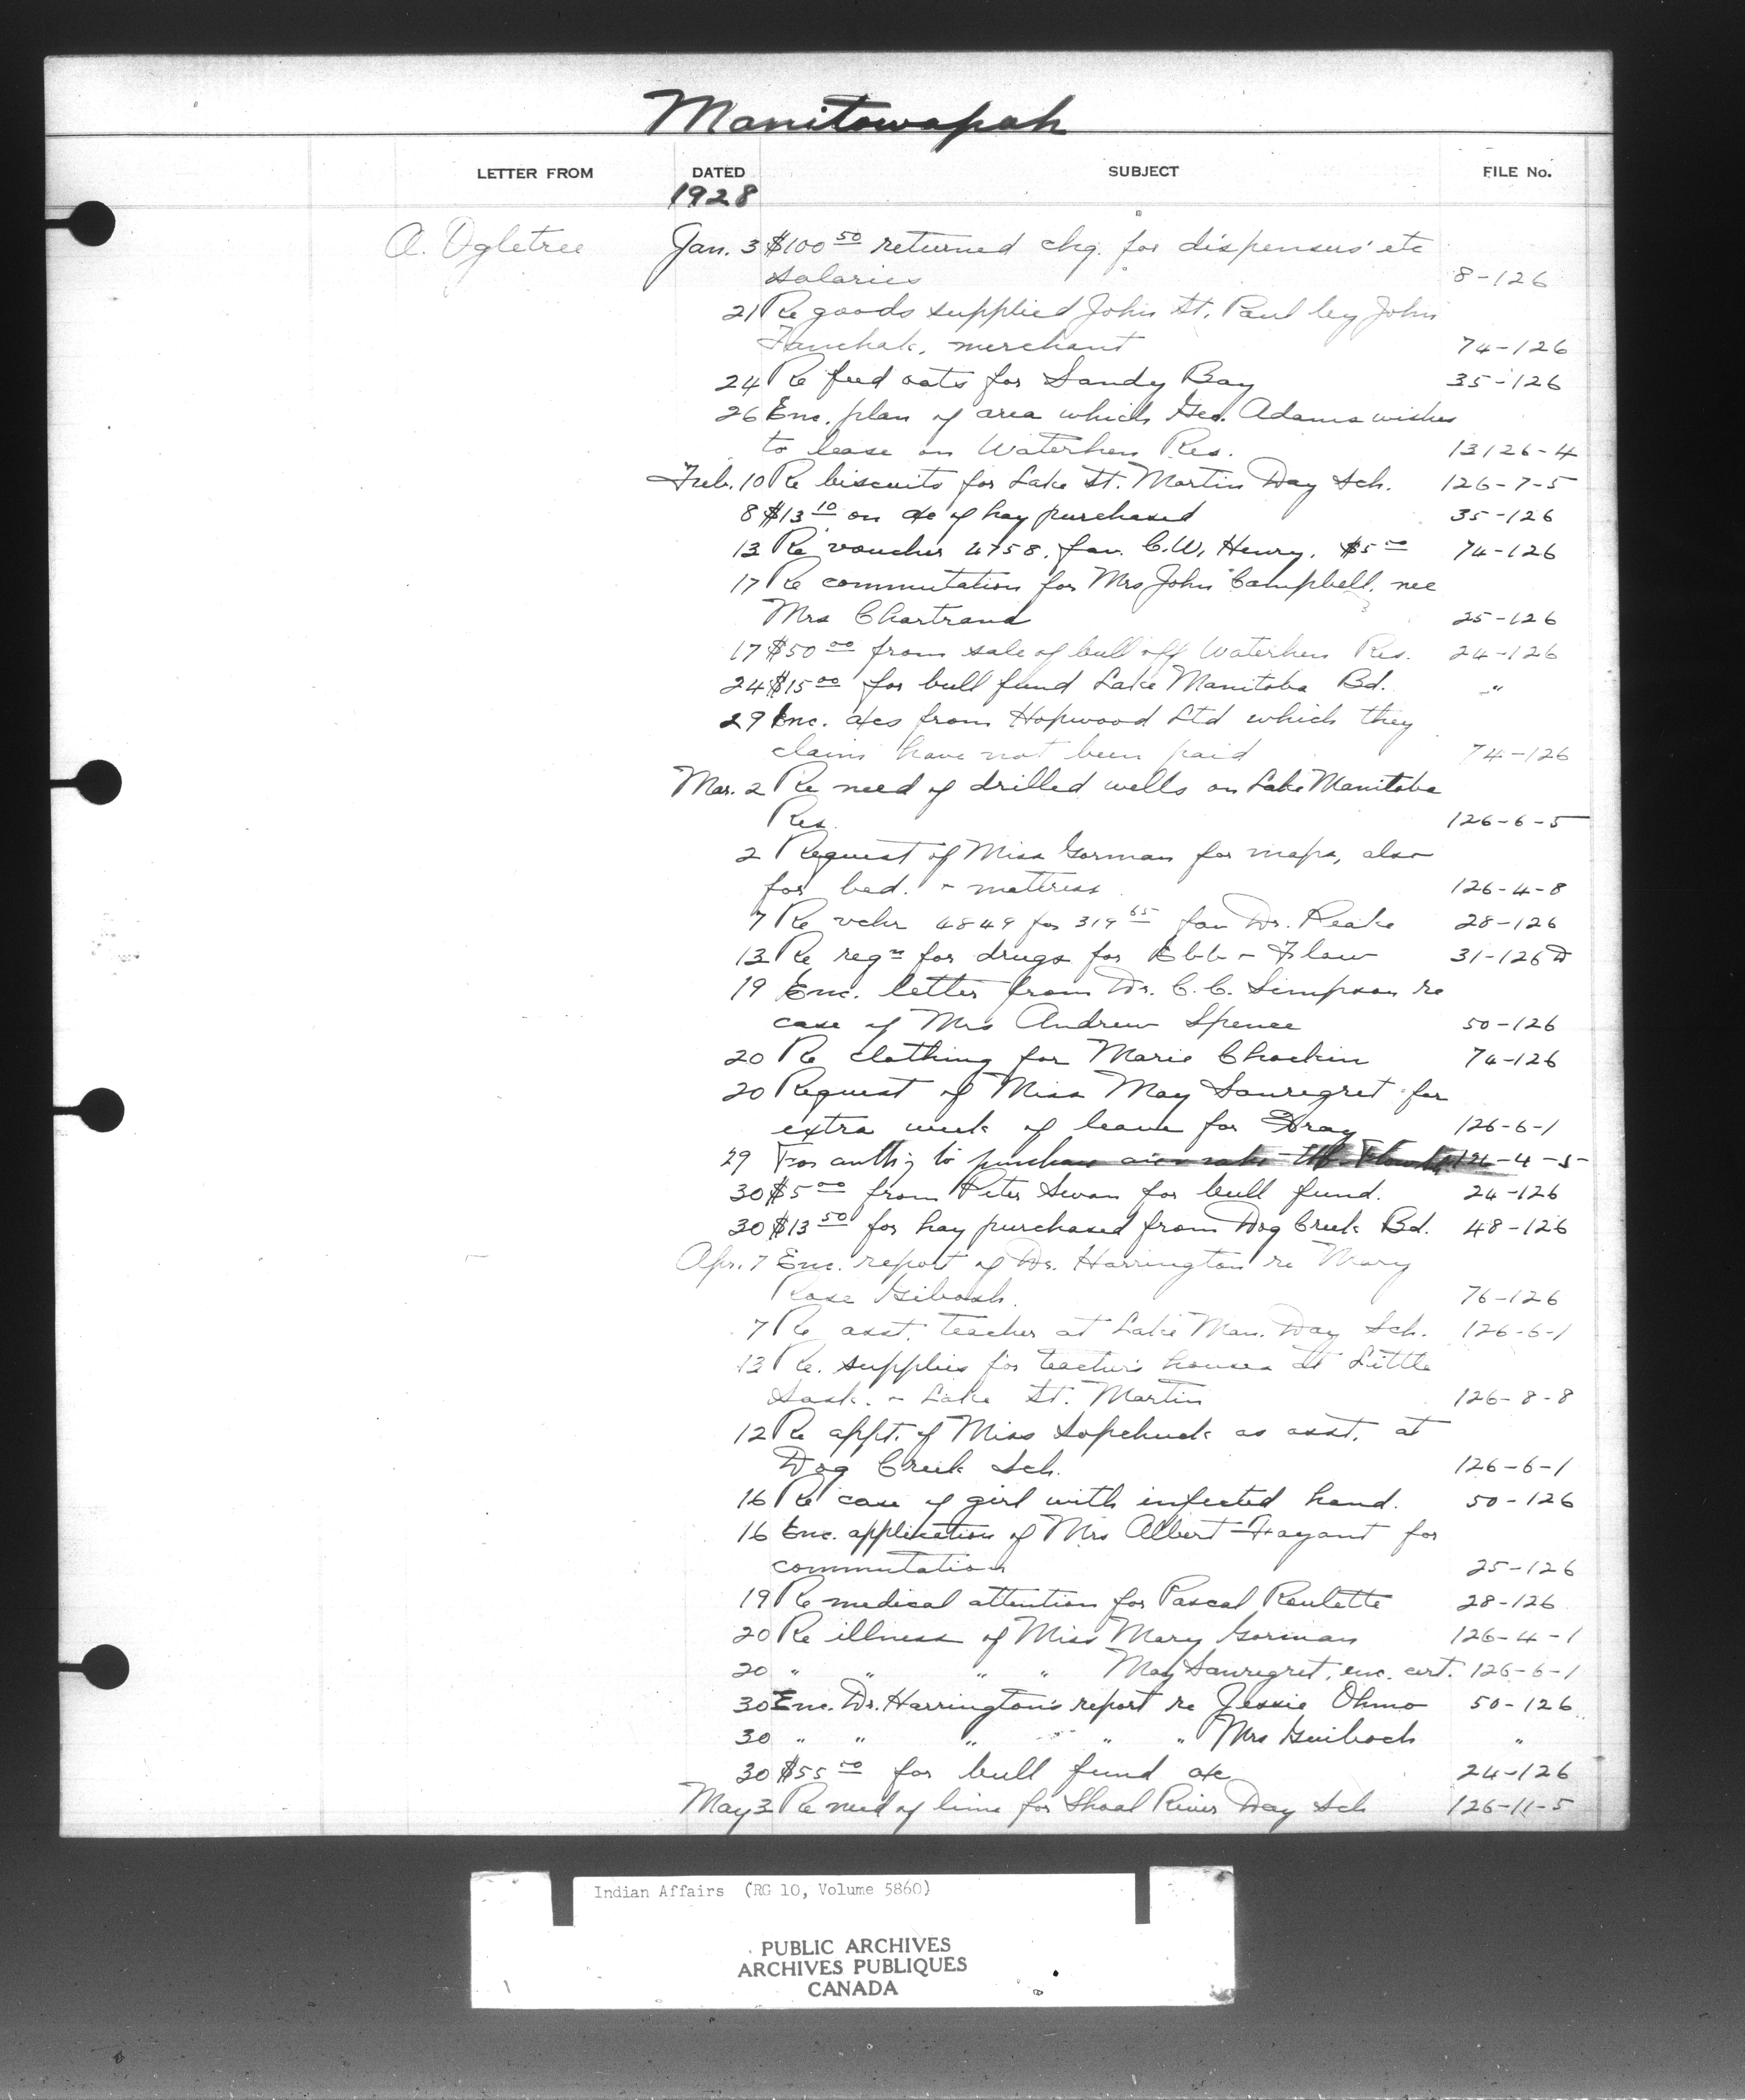 Manitowapah
LETTER FROM DATED SUBJECT FILE No.
1928
A. Ogletree Jan. 3 $100 50 returned chq. for dispensers' etc
salaries 8-126
21 Re goods supplied John St. Paul by John
merchant 74-126
24 Re feed oats for Sandy Bay 35-126
26 Enc. plan of area which Geo. Adams wishes
to lease on Waterhen Res. 13126-4
Feb. 10 Re biscuits for Lake St. Martin Day Sch. 126-7-5
8 $13 10 on a/c of hay purchased 35-126
13 Re voucher 4758. fav. C.W. Henry. $5 00 74-126
17 Re commutation for Mrs John Campbell, nee
Mrs Chartrand 25-126
17 $50 00 from sale of bull off Waterhen Res. 24-126
24 $15 00 for bull fund Lake Manitoba Bd. "
29 Enc. a/cs from Hopwood Ltd which they
claim have not been paid 74-126
Mar. 2 Re need of drilled wells on Lake Manitoba
Res. 126-6-5
2 Request of Miss Gorman for maps, also
for bed. & mattress 126-4-8
7 Re vchr 4849 for 319 65 fav Dr. Peake 28-126
13 Re reqn for drugs for Ebb & Flow 31-126 D
19 Enc. letter from Dr. C. C. Simpson re
case of Mrs Andrew Spence 50-126
20 Re clothing for Marie 74-126
20 Request of Miss May Sauregret for
extra week of leave for 126-6-1
29 For auth'y to purchase -4-5
30 $5 00 from Peter Swan for bull fund. 24-126
30 $13 50 for hay purchased from Dog Creek Bd. 48-126
Apr. 7 Enc. report of Dr. Harrington re Mary
Rose 76-126
7 Re asst. teacher at Lake Man. Day Sch. 126-6-1
13 Re. supplies for teacher's houses at Little
Sask. & Lake St. Martin 126-8-8
12 Re appt. of Miss Sopchuck as asst. at
Dog Creek Sch. 126-6-1
16 Re case of girl with infected hand. 50-126
16 Enc. application of Mrs Albert Fayant for
commutation 25-126
19 Re medical attention for Pascal Roulette 28-126
20 Re illness of Miss Mary Gorman 126-4-1
20 " " " " May Sauregret, enc. cert. 126-6-1
30 Enc. Dr. Harrington's report re Jessie Ohmo 50-126
30 " " " " " Mrs Guiboch "
30 $55 00 for bull fund a/c 24-126
May 3 Re need of lime for Shoal River Day Sch 126-11-5
Indian Affairs (RG 10, Volume 5860)
PUBLIC ARCHIVES
ARCHIVES PUBLIQUES
CANADA